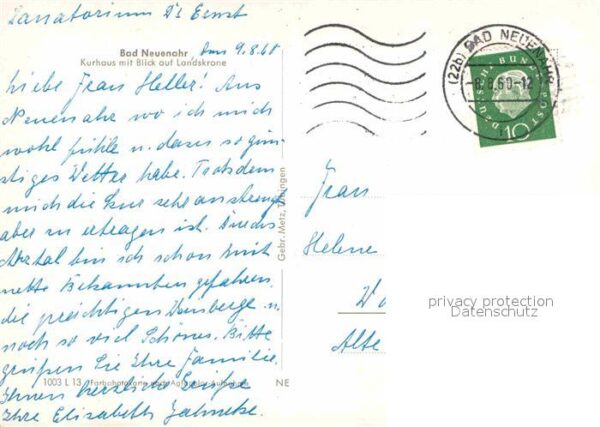 Sanatorium Dr Ernst
Bad Neuenahr
Kurhaus mit Blick auf Landskrone
den 9.8.60
Liebe Frau Heller! Aus
Neuenahr wo ich mich
wohl fühle u. dazu so gün-
stiges Wetter habe. Trotzdem
mich die Kur sehr anstrengt
aber zu ertragen ist. Durchs
Ahrtal bin ich schon mit
nette Bekannten gefahren,
die prächtigen Weinberge u.
noch so viel Schönes. Bitte
grüßen Sie Ihre Familie.
1003 L 13
Ihnen herzliche Grüße
Ihre Elisabeth
Gebr. Metz, Tübingen
NE
(22b) BAD NEUENAHR
DEUTSCHE BUNDESPOST
10
Frau
Helene
Alte
privacy protection
Datenschutz